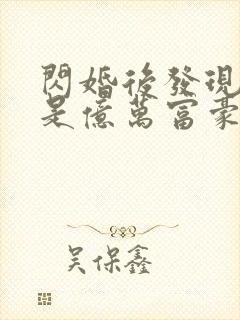 閃婚後發現
是億萬富豪
吴保鑫